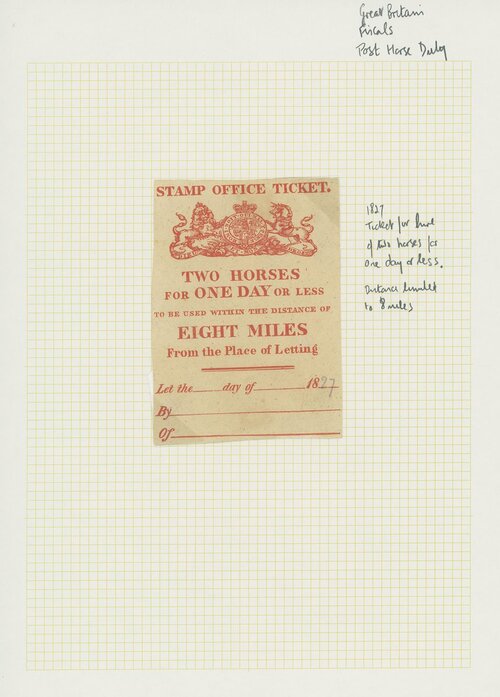 Great Britain
Fiscals
Post Horse Duty
STAMP OFFICE TICKET.
TWO HORSES
FOR ONE DAY OR LESS
TO BE USED WITHIN THE DISTANCE OF
EIGHT MILES
From the Place of Letting
Let the day of 1827
By
Of
1827
Ticket for hire
of two horses for
one day or less.
Distance limited
to 8 miles